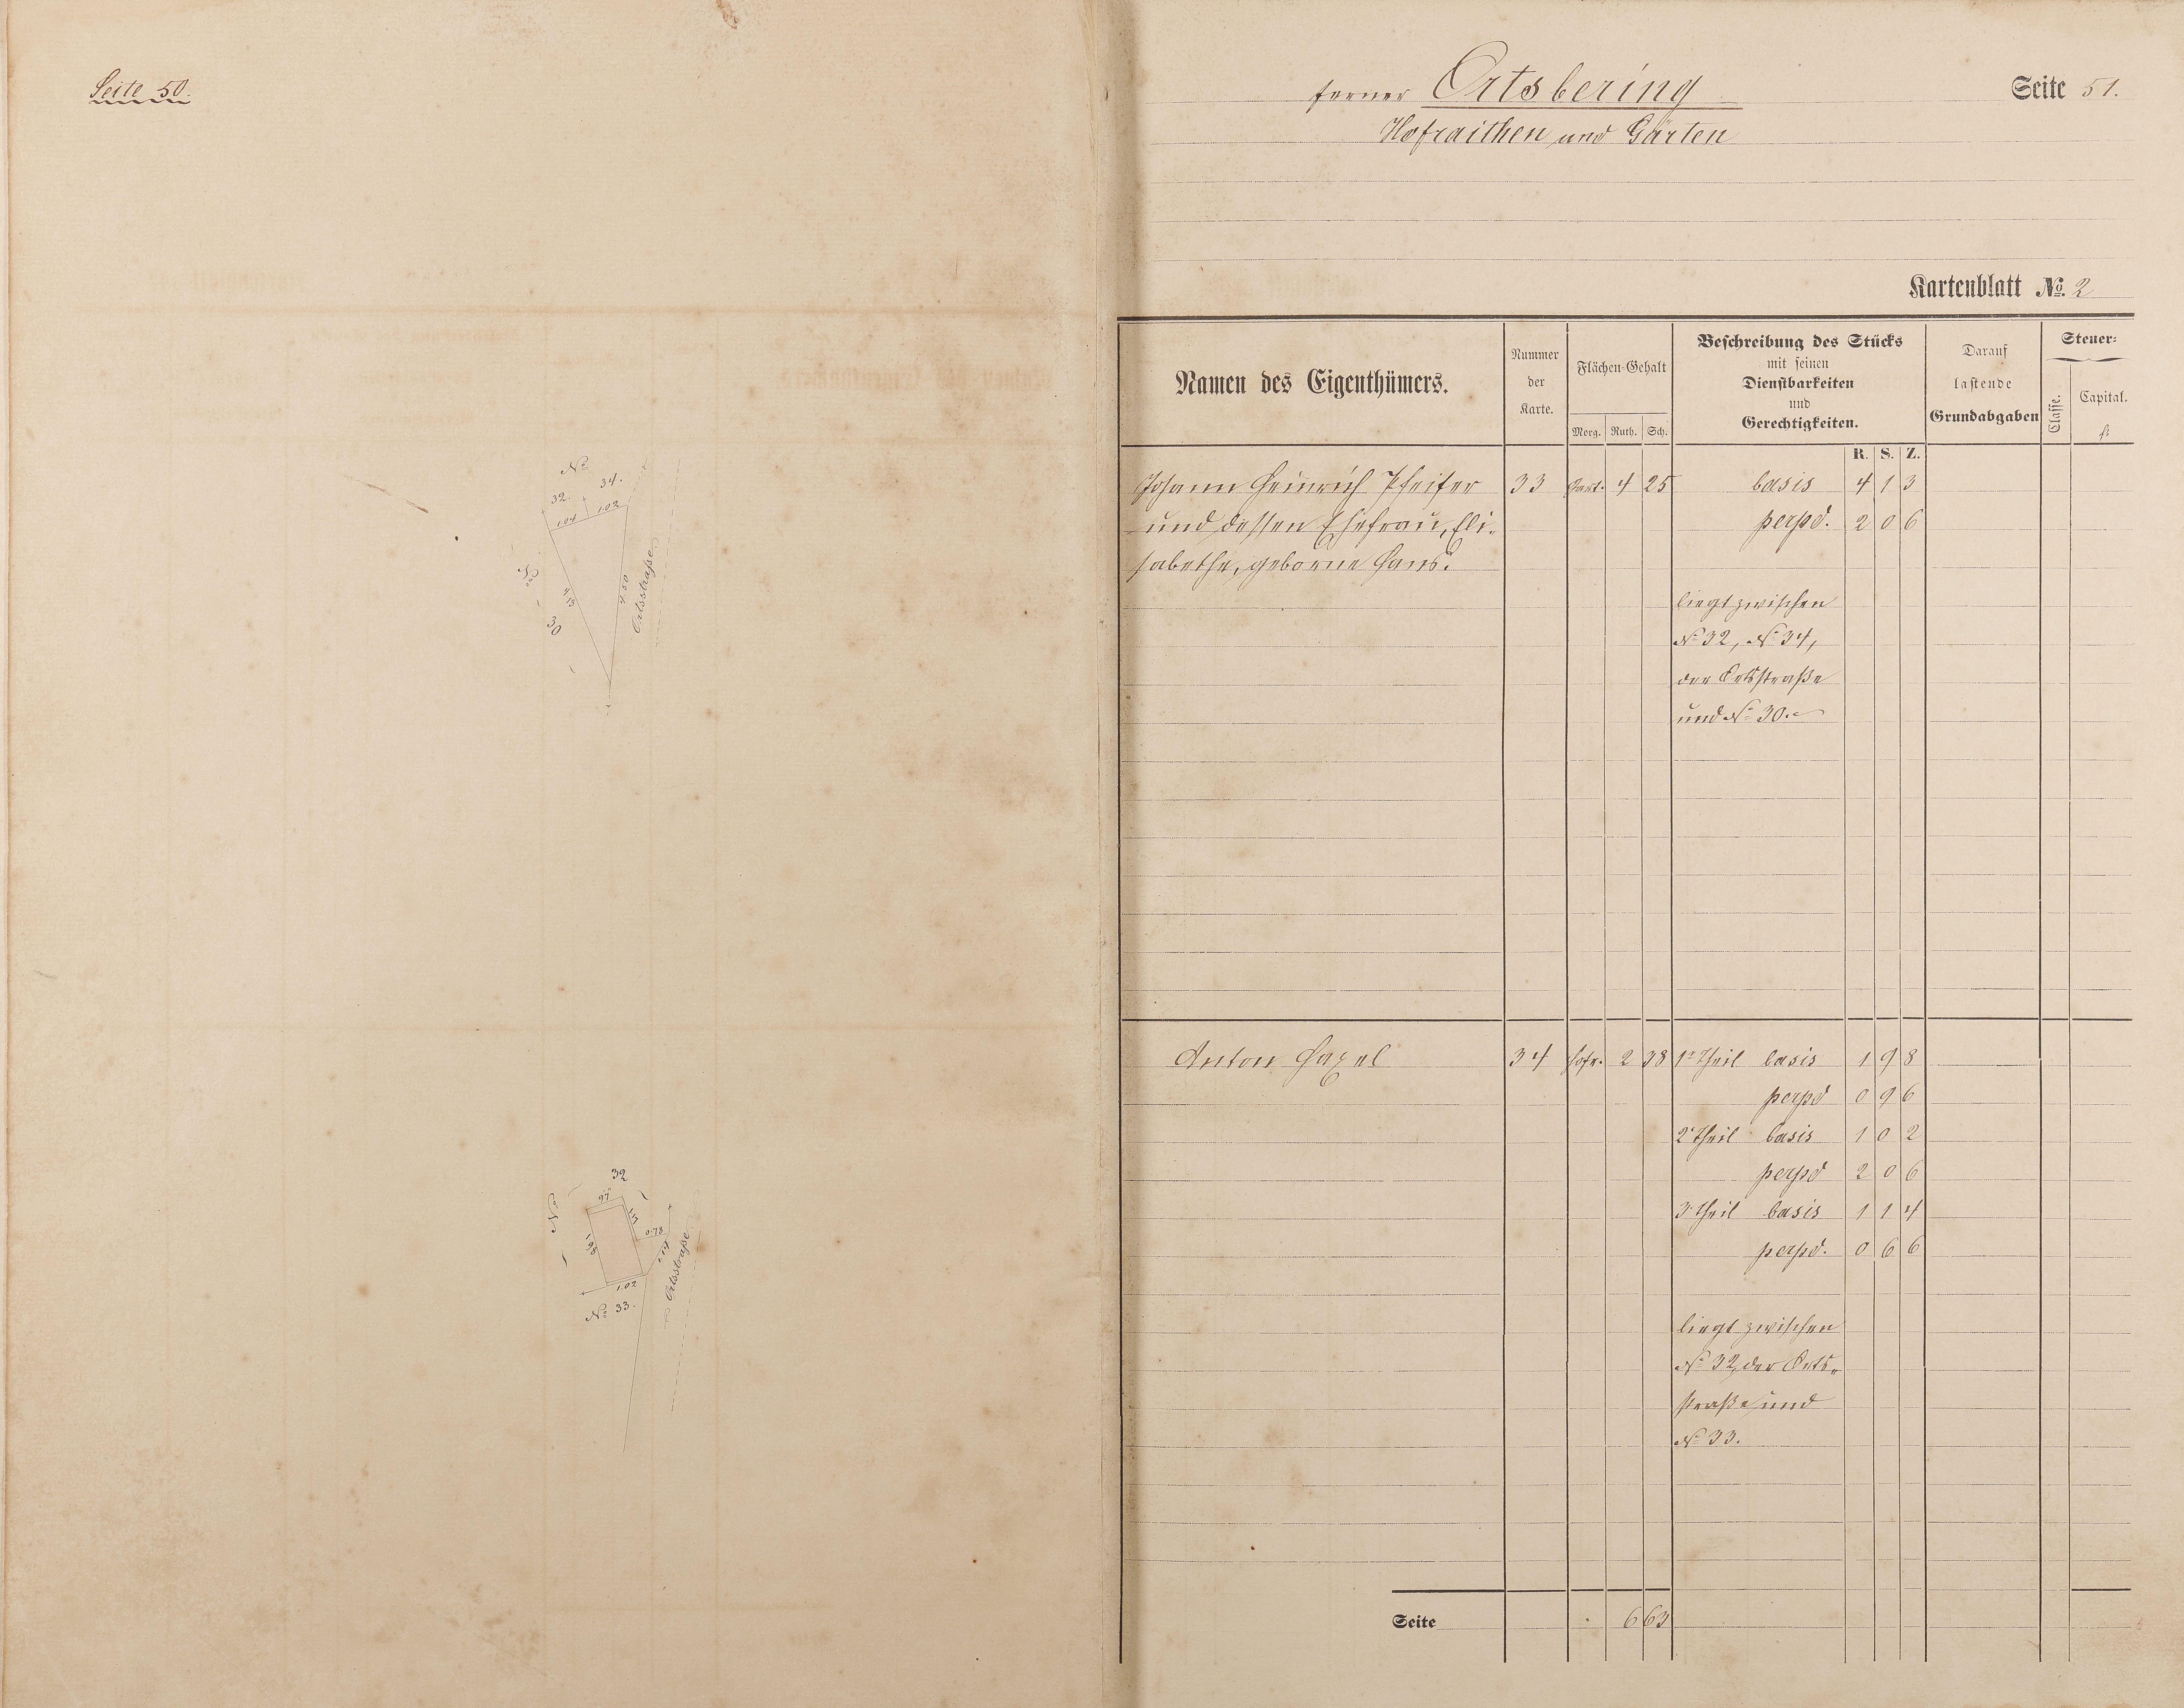 Seite 50.
No
32. 34.
1.04 1.02
No 30
4.13
4.50
Ortsstraße
32
No
97
1.17
0.78
1.98
1.14
1.02
Ortsstraße
No 33.
ferner Ortsbering
Seite 51.
Hofraithen und Gärten
Kartenblatt No. 2
Namen des Eigenthümers.
Nummer
der
Karte.
Flächen-Gehalt
Morg. Ruth. Sch.
Beschreibung des Stücks
mit seinen
Dienstbarkeiten
und
Gerechtigkeiten.
Darauf
lastende
Grundabgaben
Steuer-
Classe.
Capital.
fl.
R. S. Z.
Johann Heinrich Pfeifer 33 Gart. 4 25 basis 4 1 3
und dessen Ehefrau, Eli- perpd. 2 0 6
sabethe, geborne Hans.
liegt zwischen
No 32, No 34,
der Ortsstraße
und No 30.
Anton Haxel 34 Hofr. 2 38 1r Theil basis 1 9 8
perpd 0 9 6
2r Theil basis 1 0 2
perpd 2 0 6
3r Theil basis 1 1 4
perpd. 0 6 6
liegt zwischen
No 32, der Orts-
straße und
No 33.
Seite 6 63